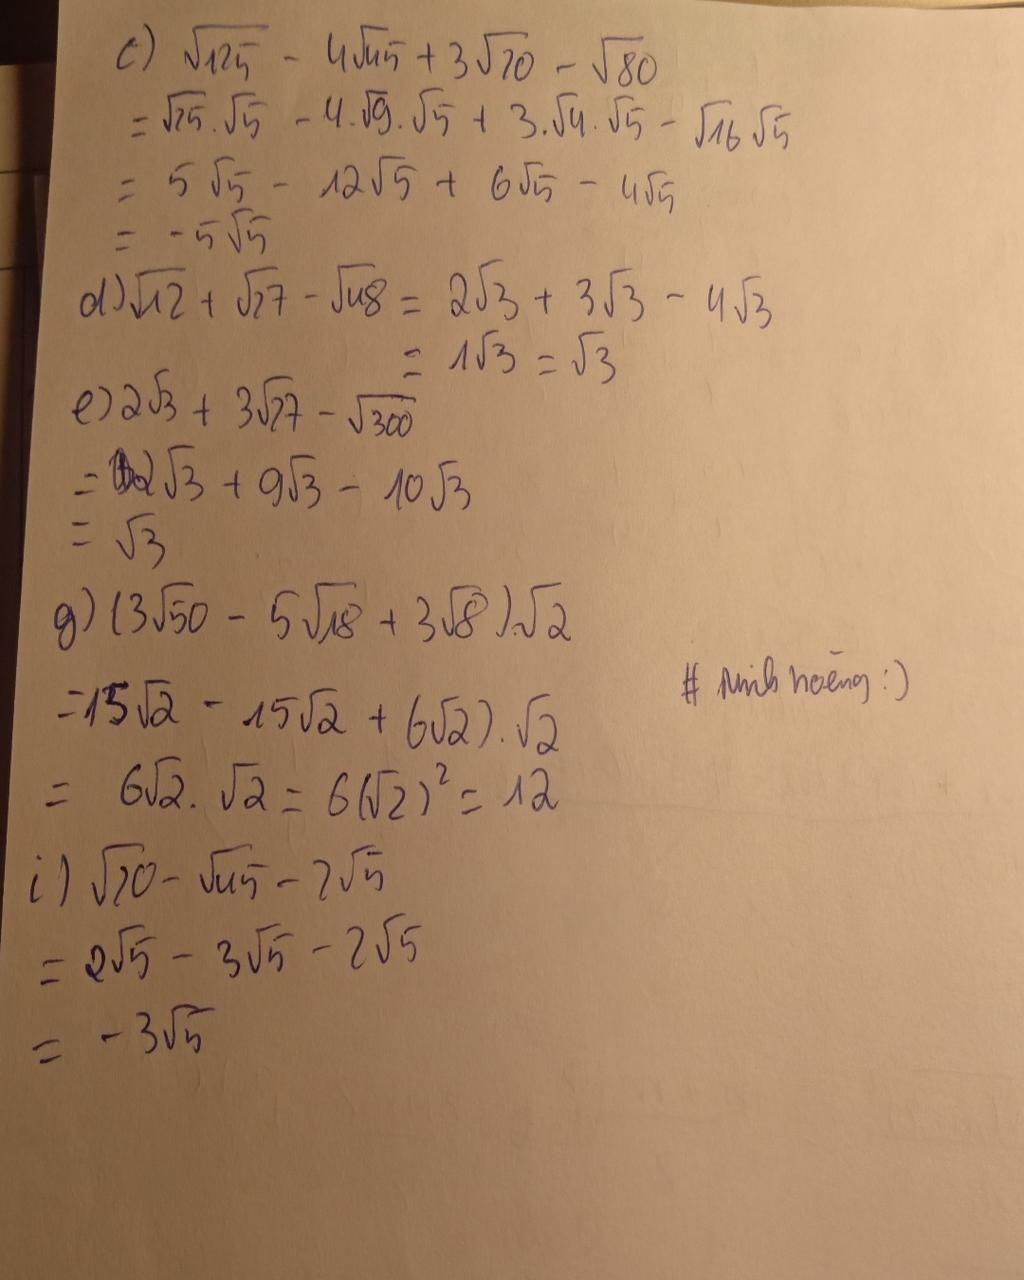 c) √125 - 4√45 + 3√20 - √80
= √25 . √5 - 4.√9.√5 + 3.√4.√5 - √16 √5
= 5√5 - 12√5 + 6√5 - 4√5
= -5√5
d) √12 + √27 - √48 = 2√3 + 3√3 - 4√3
= 1√3 = √3
e) 2√3 + 3√27 - √300
= 2√3 + 9√3 - 10√3
= √3
g) (3√50 - 5√18 + 3√8).√2
= 15√2 - 15√2 + 6√2).√2
# hoàng :)
= 6√2. √2 = 6(√2)² = 12
i) √20 - √45 - 2√5
= 2√5 - 3√5 - 2√5
= -3√5